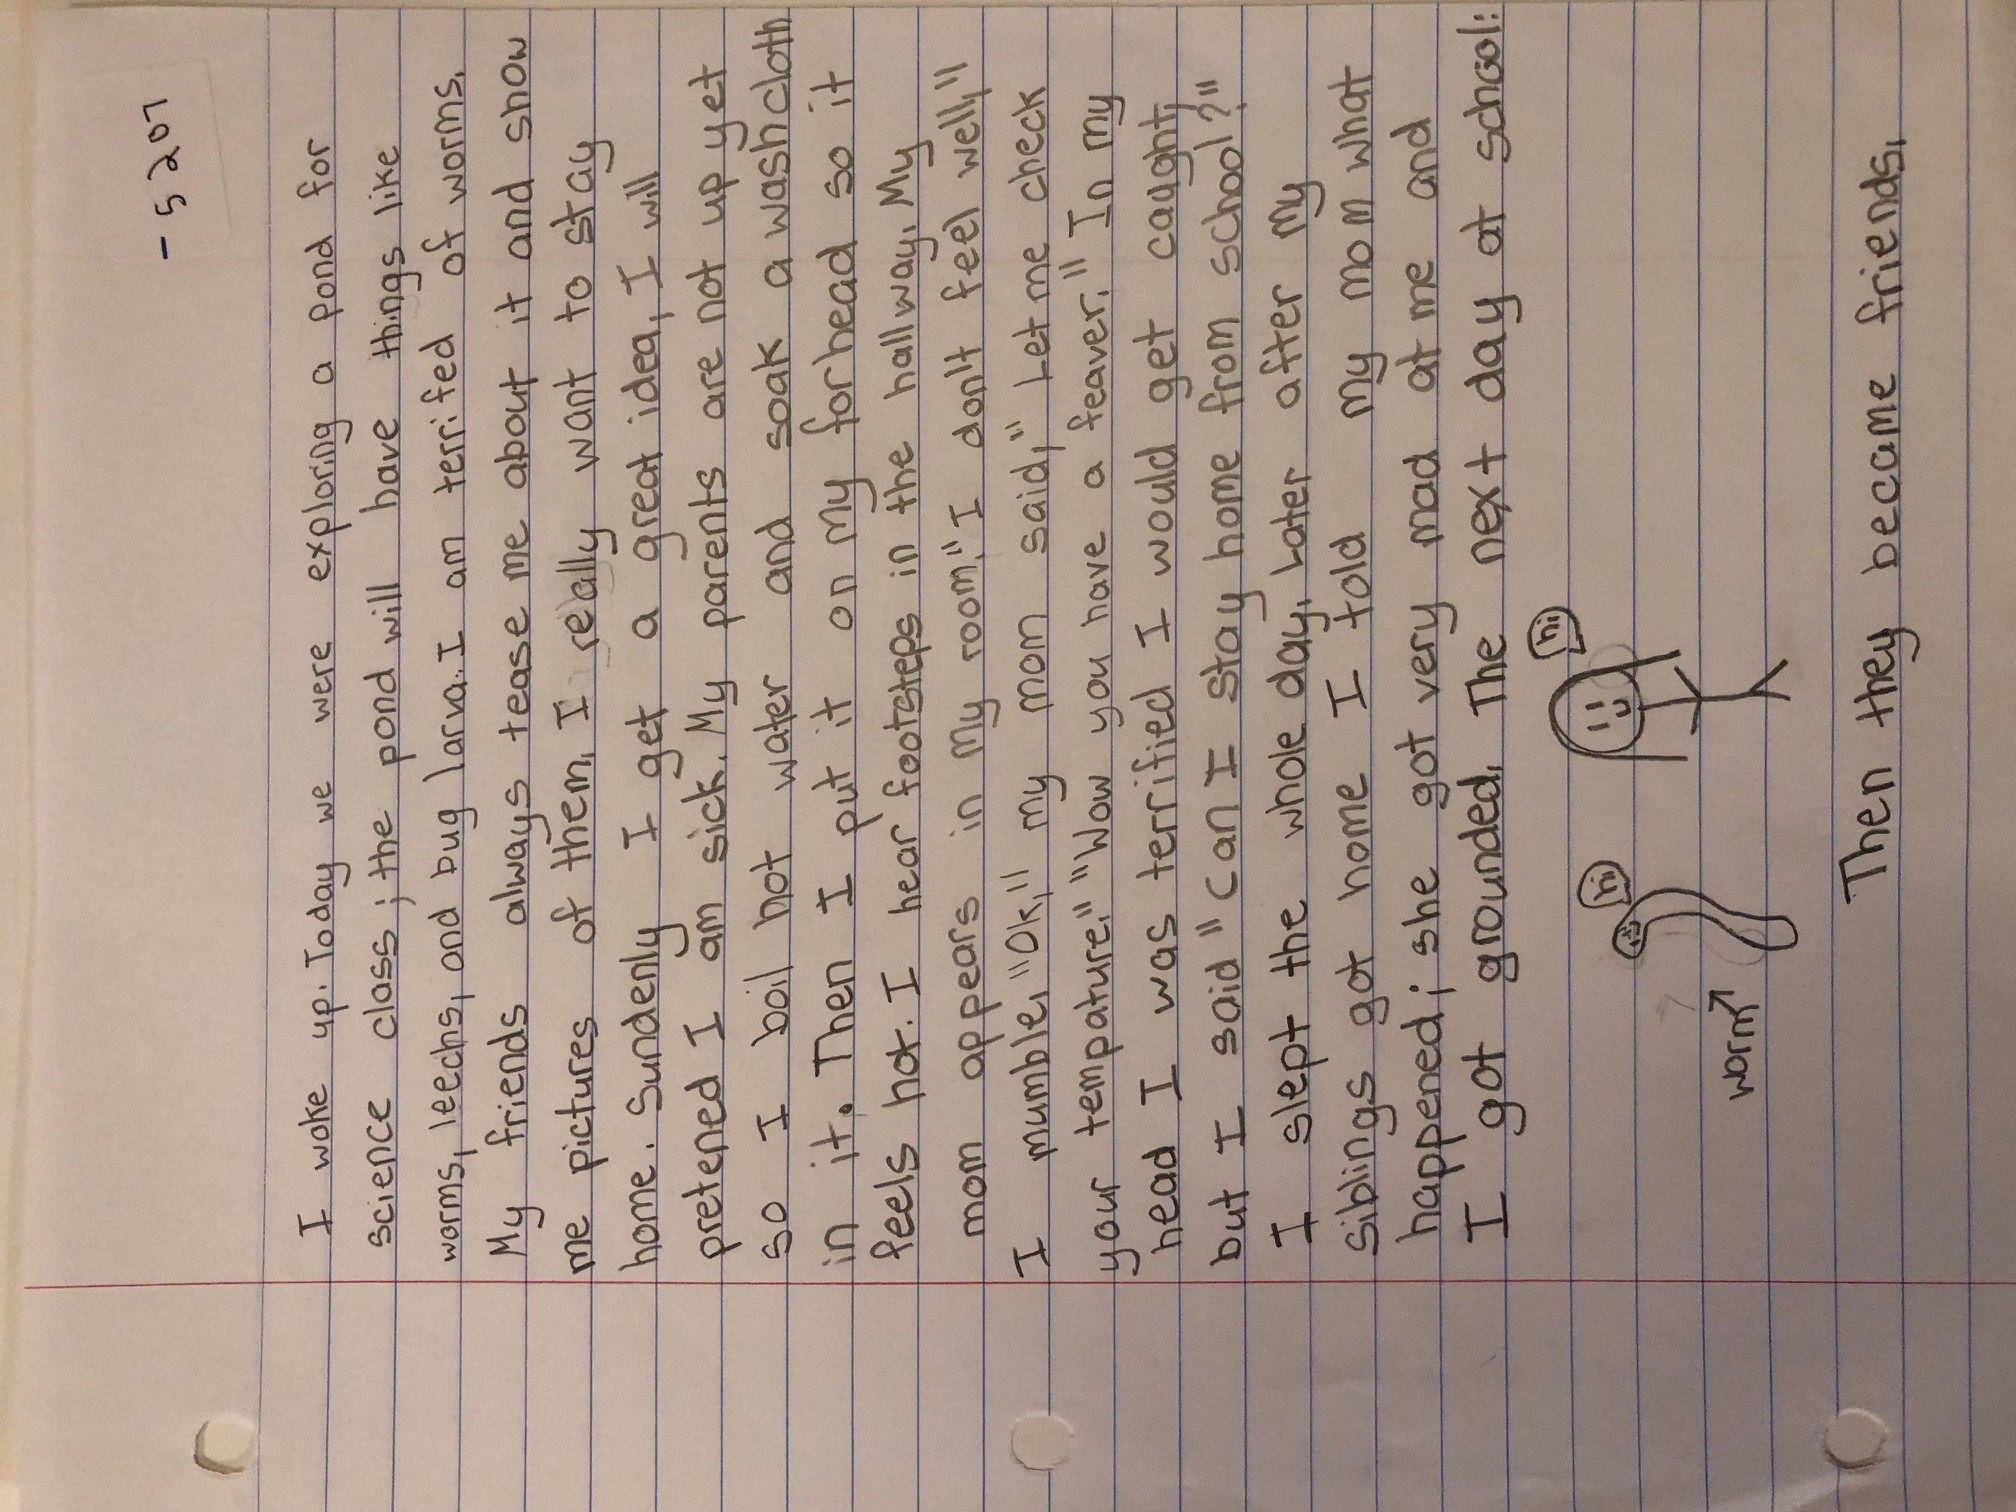 - 5207
I woke up. Today we were exploring a pond for
science class; the pond will have things like
worms, leechs, and bug larva. I am terrifed of worms.
My friends always tease me about it and show
me pictures of them. I really want to stay
home. Sundenly I get a great idea, I will
pretened I am sick. My parents are not up yet
so I boil hot water and soak a washcloth
in it. Then I put it on my forhead so it
feels hot. I hear footsteps in the hallway. My
mom appears in my room. "I don't feel well,"
I mumble. "Ok," my mom said, "Let me check
your tempature." "Wow you have a feaver." In my
head I was terrified I would get caught,
but I said "Can I stay home from school?"
I slept the whole day. Later after my
siblings got home I told my mom what
happened; she got very mad at me and
I got grounded. The next day at school:
hi
hi
worm
Then they became friends.